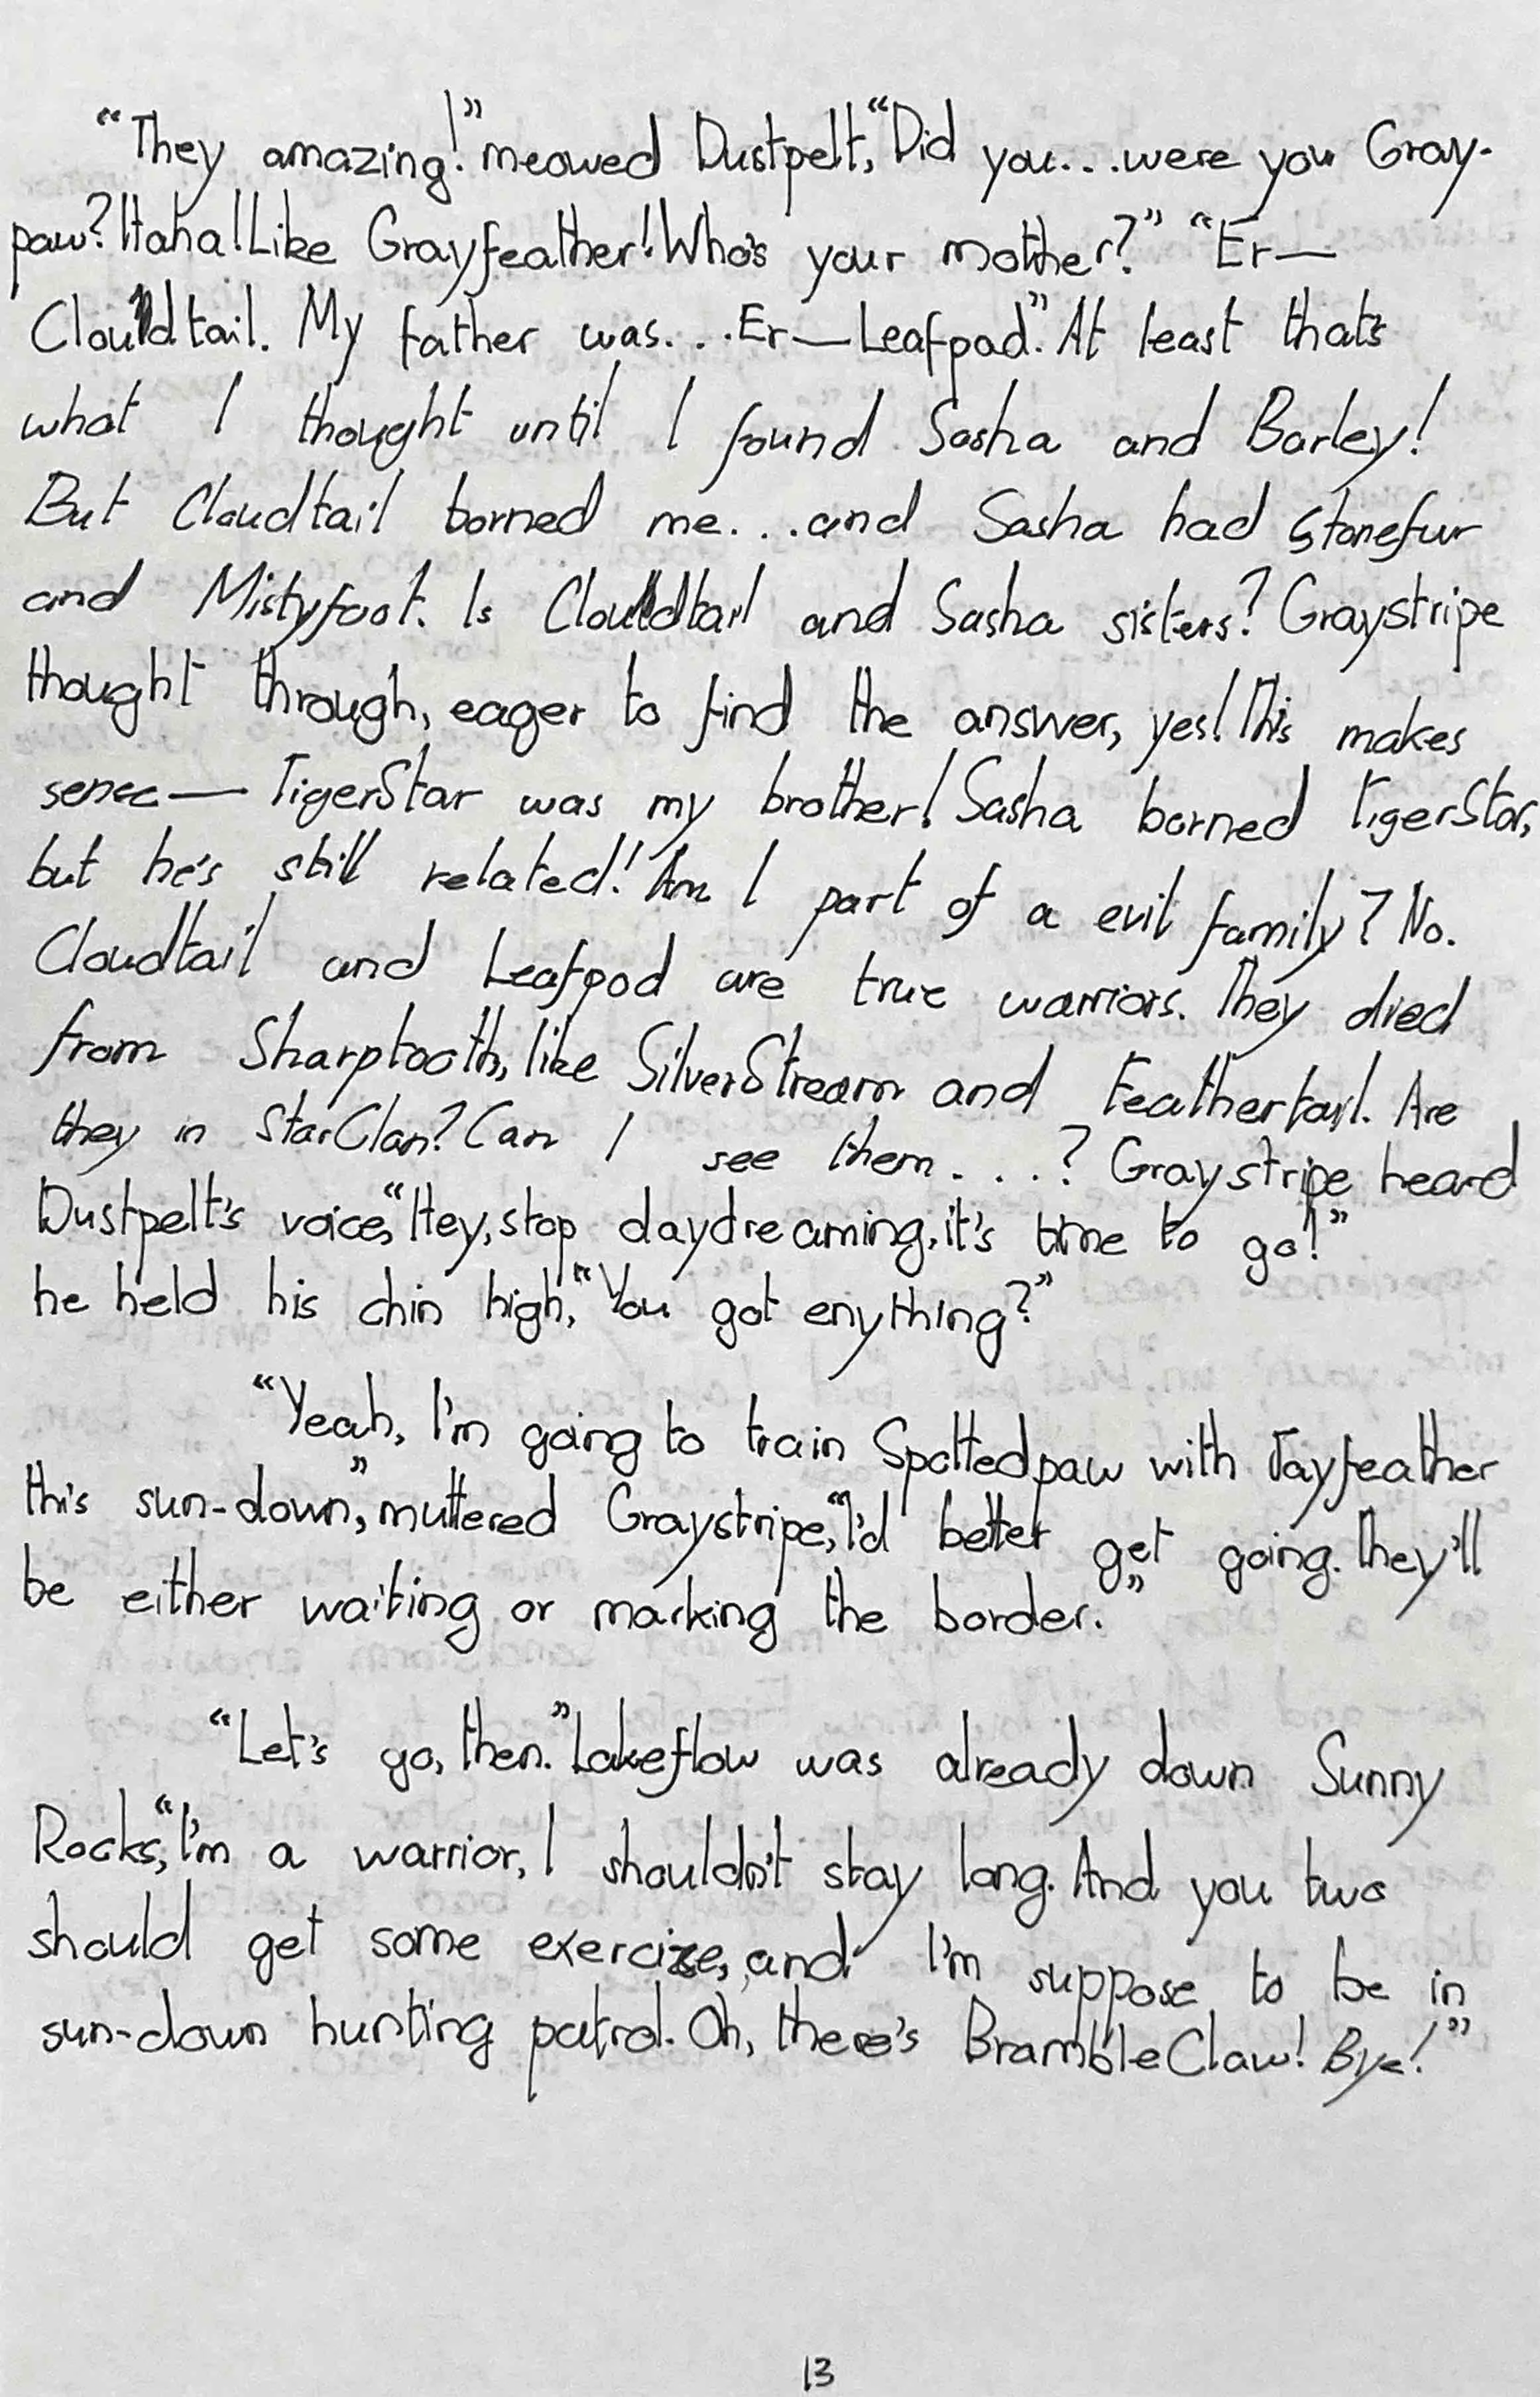 “They amazing!” meowed Dustpelt, “Did you...were you Gray-
paw? Haha! Like Grayfeather! Who's your mother?” “Er—
Cloudtail. My father was...Er—Leafpad.” At least that's
what I thought until I found Sasha and Barley!
But Cloudtail borned me...and Sasha had Stonefur
and Mistyfoot. Is Cloudtail and Sasha sisters? Graystripe
thought through, eager to find the answer, yes! This makes
sense— TigerStar was my brother! Sasha borned TigerStar,
but he's still related! Am I part of a evil family? No.
Cloudtail and Leafpod are true warriors. They died
from Sharptooth, like SilverStream and Feathertail. Are
they in StarClan? Can I see them....? Graystripe heard
Dustpelt's voice, “Hey, stop daydreaming, it's time to go!”
he held his chin high, “You got enything?”
“Yeah, I'm going to train Spottedpaw with Jayfeather
this sun-down,” muttered Graystripe, “I'd better get going. They'll
be either waiting or marking the border.”
“Let's go, then.” Lakeflow was already down Sunny
Rocks, “I'm a warrior, I shouldn't stay long. And you two
should get some exercize, and I'm suppose to be in
sun-down hunting patrol. Oh, there's BrambleClaw! Bye!”
13